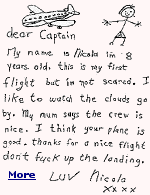 dear Captain
My name is Nicola im 8
years old, this is my first
flight but im not scared. I
like to watch the clouds go
by. My mum says the crew is
nice. I think your plane is
good. thanks for a nice flight
don't fuck up the landing.
LUV Nicola
xxxx
More